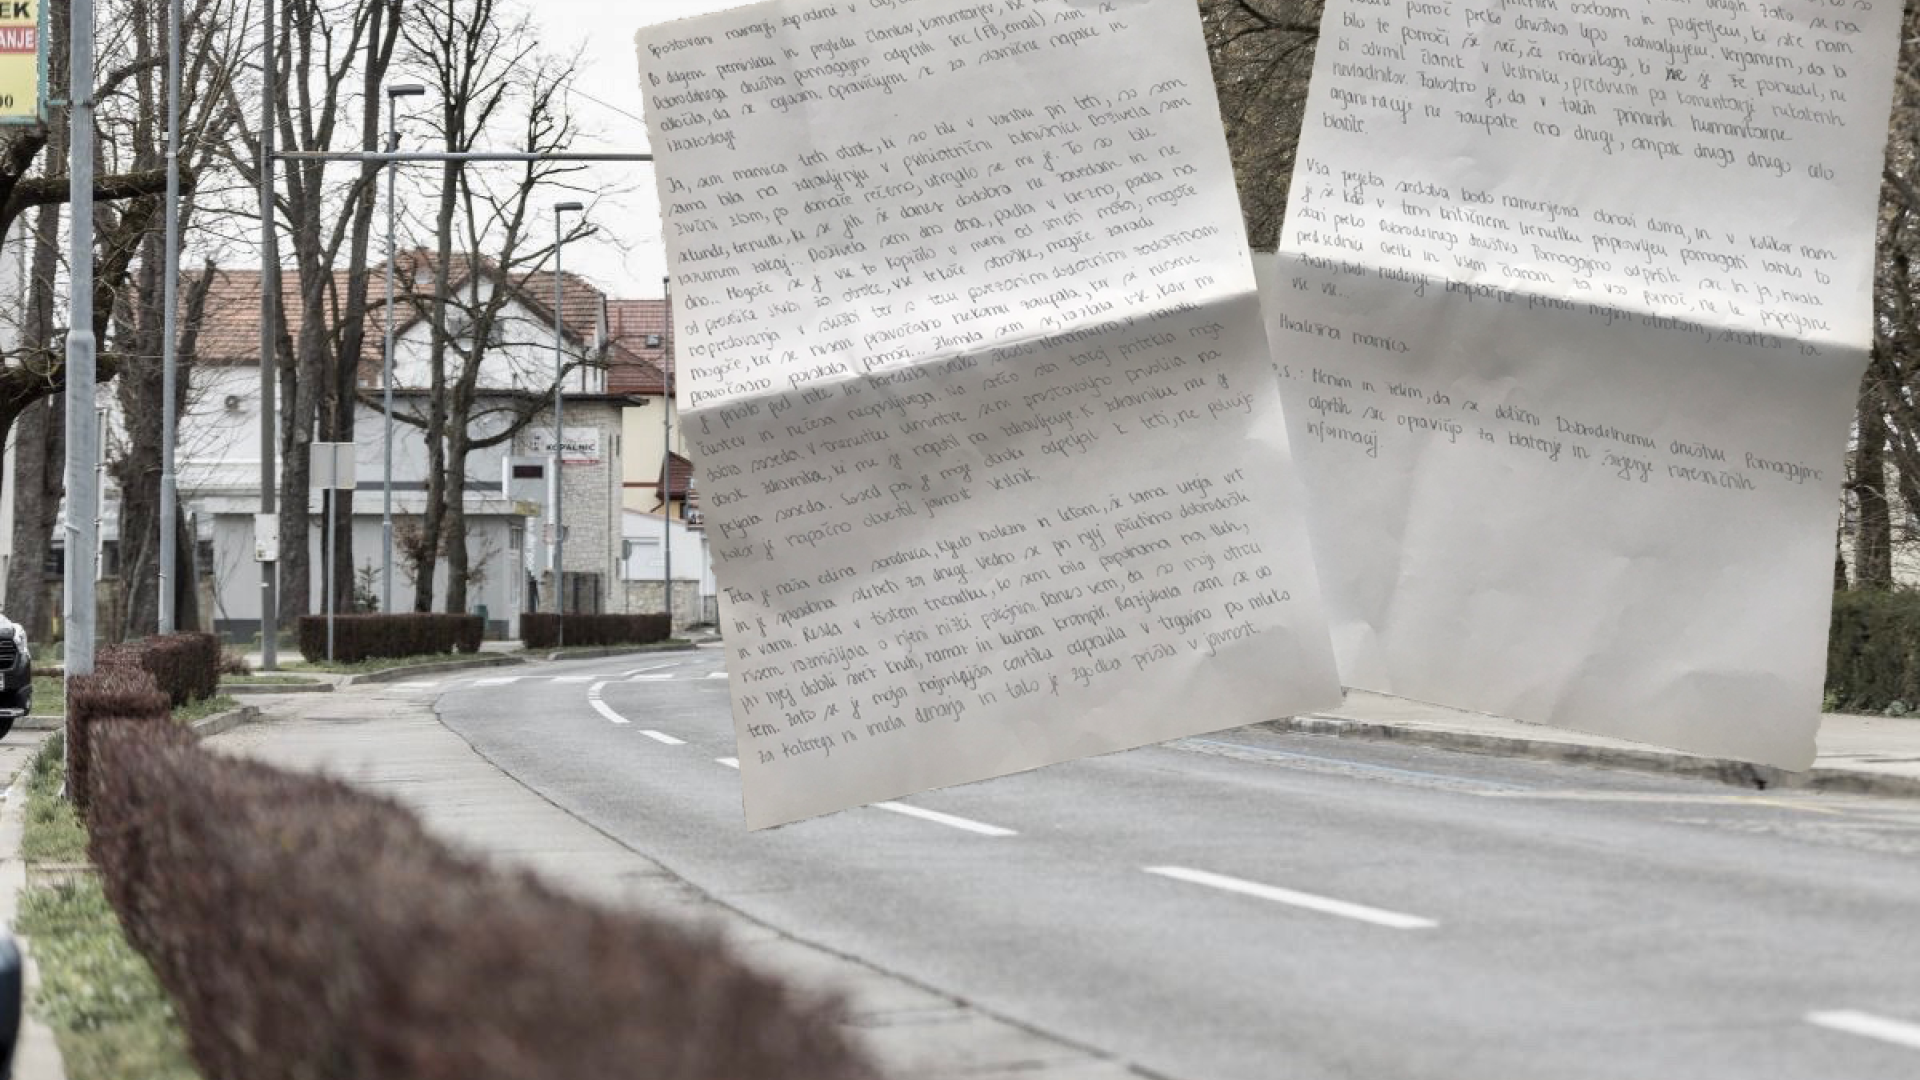 EK
ANJE
00
KOPALNIC
Spoštovani
Po dolgem premisleku in pregledu člankov, komentarjev,
Dobrodelnega društva pomagajmo odprtih src (FB, email) sem se
odločila, da se oglasim, opravičujem se za slovnične napake in
izražanje
Ja, sem mamica treh otrok, ki so bili v varstvu pri teti, jo sem
sama bila na zdravljenju v psihiatrični bolnišnici. Doživela sem
živčni zlom, po domače rečeno, utrgalo se mi je. To so bile
sekunde, trenutki, ki se jih še danes dodobra ne zavedam in ne
razumem zakaj... Doživela sem dno dna, padla v brezno, padla na
dno... Mogoče se je vse to kopičilo v meni od smrti moža, mogoče
od prevelike skrbi za otroke, vse tekoče stroške, mogoče zaradi
napredovanja v službi ter s tem povezanimi dodatnimi zadolžitvami
mogoče, ker se nisem pravočasno nekomu zaupala, ker si nisem
pravočasno poiskala pomoči... Zlomila sem se, razbila vse, kar mi
je prišlo pod roke in naredila veliko škodo. Nenamerno, v navalu
čustev in nečesa neopisljivega. Na srečo sta takoj pritekla moja
dobra soseda. V trenutku umiritve sem prostovoljno privolila na
obisk zdravnika, ki me je napotil na zdravljenje. K zdravniku me je
peljala soseda. Sosed pa je moje otroke odpeljal k teti, ne policija
kakor je napačno obvestil javnost Vestnik.
Teta je naša edina sorodnica, kljub bolezni in letom, še sama ureja vrt
in je sposobna skrbeti za druge. Vedno se pri njej počutimo dobrodošli
in varni. Resda v tistem trenutku, ko sem bila popolnoma na tleh,
nisem razmišljala o njeni nizki pokojnini. Danes vem, da so moji otroci
pri njej dobili svež kruh, namaz in kuhan krompir. Razjokala sem se ob
tem. Zato se je moja najmlajša čarlika odpravila v trgovino po mleko
za katerega ni imela denarja in tako je zgodba prišla v javnost.
drugih zato se na
osebam in podjetjem, ki ste nam
pomoč preko društva lepo zahvaljujem. Verjamem, da bi
bilo te pomoči še več, če marsikoga, ki ne je že ponudil, ne
bi odvrnil članek v Vestniku, predvsem pa komentarji nekaterih
nevladnikov. Žalostno je, da v takih primerih humanitarne
organizacije ne zaupate ena drugi, ampak druga drugo celo
blatite.
Vsa prejeta sredstva bodo namenjena obnovi doma, in v kolikor nam
je še kdo v tem kritičnem trenutku pripravljen pomagati lahko to
stori preko Dobrodelnega društva Pomagajmo odprtih src. In ja, hvala
predsednici Cvetki in vsem članom za vso pomoč, ne le pripeljane
stvari, tudi nudenje brezplačne pomoči mojim otrokom, skratka za
vse vse...
Hvaležna mamica
P.S.: Menim in želim, da se dolični Dobrodelnemu društvu Pomagajmo
odprtih src opravičijo za blatenje in širjenje neresničnih
informacij.